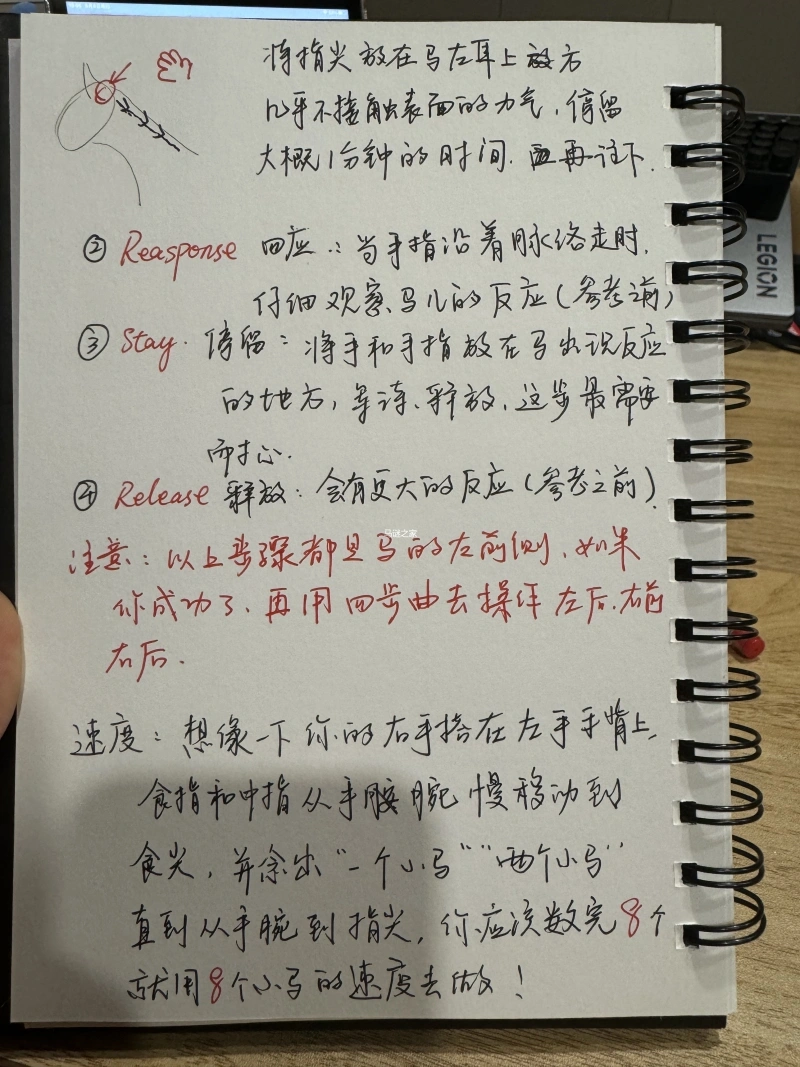 将指尖放在马左耳上放方
几乎不接触表面的力气，停留
大概1分钟的时间. 再往下.
② Reasponse 回应：当手指沿着脉络走时，
仔细观察马儿的反应(参考之前)
③ Stay. 停留：将手和手指放在马出现反应
的地方，等待、释放，这步最需要
耐心.
④ Release 释放：会有更大的反应(参考之前)
马谜之家
注意：以上步骤都是马的左前侧，如果
你成功了，再用四步曲去操作左后.右前
右后.
速度：想像一下你的右手搭在左手手背上，
食指和中指从手腕慢移动到
食尖，并念出“一个小马”“两个小马”
直到从手腕到指尖，你应该数完8个
就用8个小马的速度去做！
LEGION